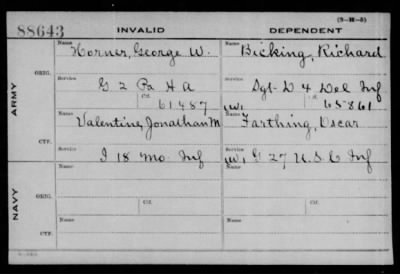 (3-M-5)
88643 INVALID DEPENDENT
Name Horner, George W. Name Bicking, Richard
ARMY
ORIG. Service Service
G 2 Pa H A Sgt. D 4 Del Inf
Ctf. 61487 (W) Ctf. 65861
Name Valentine, Jonathan M Name Farthing, Oscar
CTF. Service Service
I 18 Mo. Inf (W) G 27 U.S.C Inf
NAVY
Name Name
ORIG. Service Ctf. Service Ctf.
Name Name
CTF. Service Service